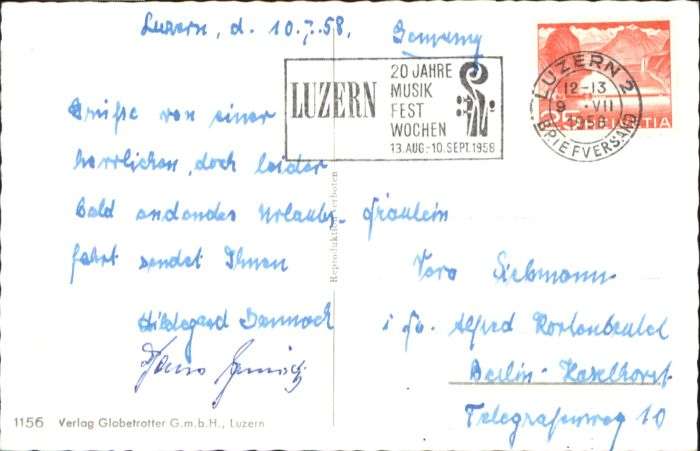 Luzern, d. 10.7.58.
Germany
LUZERN
20 JAHRE
MUSIK
FEST
WOCHEN
13. AUG.-10. SEPT. 1958
LUZERN 2
12-13
9. VII
1958
BRIEFVERSAND
HELVETIA
Grüße von einer
herrlichen, doch leider
bald endenden Urlaubs-
fahrt sendet Ihnen
Hildegard
Fräulein
Vera Siebmann
i. Fa. Alfred Kortenbeutel
Berlin-Haselhorst
Telegrafenweg 10
Reproduktion verboten
1156 Verlag Globetrotter G.m.b.H., Luzern